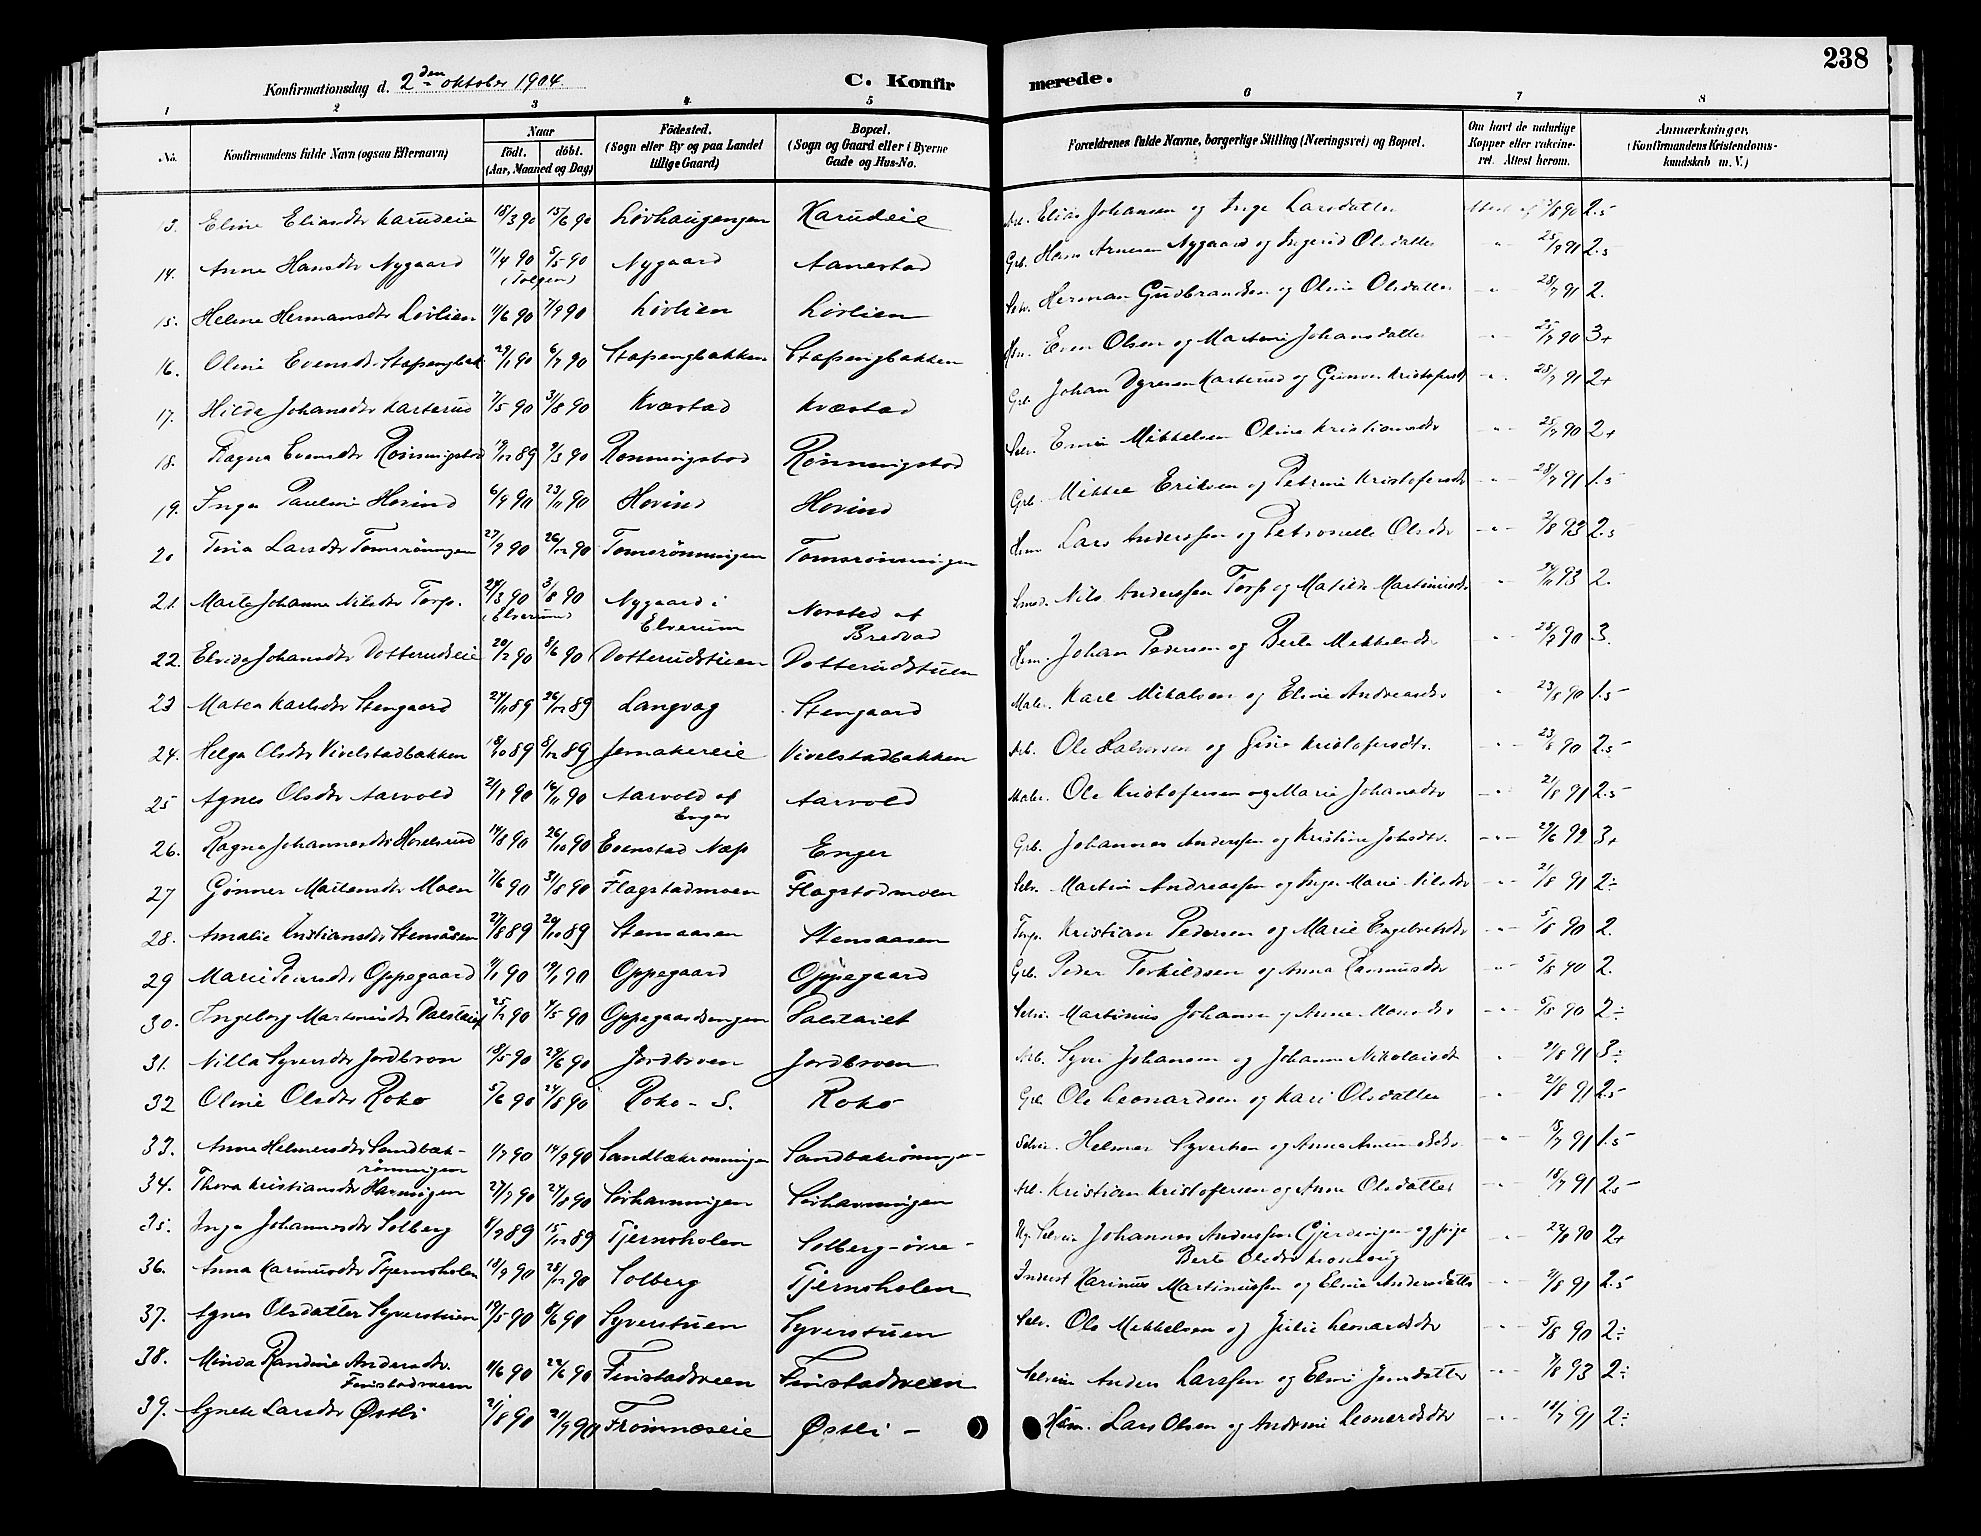 238
Konfirmationsdag d. 2den oktober 1904. C. Konfirmerede.
1 2 3 4 5 6 7 8
No. Konfirmandens fulde Navn (ogsaa Efternavn) Naar Födt. döbt. (Aar, Maaned og Dag) Födested. (Sogn eller By og paa Landet tillige Gaard) Bopæl. (Sogn og Gaard eller i Byerne Gade og Hus-No. Forældrenes fulde Navne, borgerlige Stilling (Næringsvei) og Bopæl. Om havt de naturlige Kopper eller vakcineret. Attest herom. Anmærkninger. (Konfirmandens Kristendomskundskab m. V.)
13. Eline Eliasdtr Karudeie 18/3 90 15/6 90 Lövhaugengen Karudeie Arb. Elias Johansen og Inge Larsdatter 90 2.5
14. Anne Hansdtr Nygaard 11/4 90 5/5 90 (Tolgen) Nygaard Aanestad Grb. Hans Arnesen Nygaard og Ingerid Olsdatter 25/7 91 2.5
15. Helene Hermansdtr Lövlien 11/6 90 7/9 90 Lövlien Lövlien Selv. Herman Gudbrandsen og Oline Olsdatter 28/7 91 2.
16. Oline Evensdtr Stapengbak 29/1 90 6/7 90 Stapengbakken Stapengbakken Hsm. Even Olsen og Martine Johansdatter 25/7 90 3+
17. Hilda Johansdtr Karterud 7/5 90 31/8 90 Kvæstad Kvæstad Grb. Johan Dyresen Karterud og Gunvor Kristofersdt 28/7 91 2+
18. Ragna Evensdtr Rönningstad 19/12 89 9/3 90 Rönningstad Rönningstad Selv. Even Mikkelsen Oline Kristiansdtr 25/7 90 2+
19. Inga Pauline Hovind 6/9 90 23/11 90 Hovind Hovind Grb. Mikkel Eriksen og Petrine Kristofersdtr 28/7 91 1.5
20 Tina Larsdtr Tomsrönningen 27/9 90 26/12 90 Tomsrönningen Tomsrönningen Hsm Lars Anderssen og Petronelle Olsdtr 2/8 93 2.5
21. Marte Johanne Nilsdtr Torp. 24/3 90 3/8 90 (Elverum) Nygaard i Elverum Norstad af Bredvad Smed. Nils Anderssen Torp og Matilde Martinusdtr 24/11 93 2.
22. Elvida Johansdtr Dotterudseie 20/2 90 8/6 90 Dotterudstuen Dotterudstuen Hsm. Johan Pedersen og Berte Mikkelsdtr 28/7 90 3.
23 Matea Karlsdtr Stengaard 24/11 89 26/12 89 Langvag Stengaard Maler. Karl Mikalsen og Eline Andreasdtr 23/8 90 1.5
24. Helga Olsdtr Vivelstadbakken 18/10 89 8/12 89 Jemakereie Vivelstadbakken Arb. Ole Halvorsen og Gina Kristofersdtr. 23/8 90 2.5
25 Agnes Olsdtr Aarvold 2/7 90 16/11 90 Aarvold af Enger Aarvold Maler. Ole Kristofersen og Marie Johansdtr 21/8 91 2.5
26. Ragna Johannesdtr Hovelsrud 14/8 90 26/10 90 Evenstad Næp Enger Grb. Johannes Anderssen og Kristine Johsdtr. 29/6 92 3+
27 Gönner Martinsdtr Moen 7/6 90 31/8 90 Flagstadmoen Flagstadmoen Selv. Martin Andreassen og Inger Marie Nilsdtr 2/8 91 2÷
28. Amalie Kristiansdtr Stensåsen 27/8 89 20/10 89 Stensaasen Stensaasen Torp. Kristian Pedersen og Marie Engebretsdtr 5/8 90 2.
29 Marie Pedersdtr Oppegaard 9/1 90 19/1 90 Oppegaard Oppegaard Grb. Peder Torkildsen og Anna Rasmusdtr 5/8 90 2.
30. Ingeborg Martinusdtr 25/2 90 4/5 90 Oppegaardsengen Selv. Martinus Johansen og Anne Monsdtr 5/8 90 2÷
31. Nilla Syversdtr Jordbroen 18/5 90 29/6 90 Jordbroen Jordbroen Arb. Syver Johansen og Johanne Nikolaisdtr 21/8 91 3÷
32 Oline Olsdtr Roko 5/6 90 24/8 90 Roko - S. Roko Grb. Ole Leonardsen og Kari Olsdatter 21/8 91 2.5
33. Anne Helmersdtr Sandbækrönningen 1/7 90 14/9 90 Sandbækrönningen Sandbækrönningen Selv. Helmer Syvertsen og Anne 18/7 91 1.5
34. Thora Kristiansdtr Havningen 27/7 90 24/8 90 Sörhavningen Sörhavningen Arb. Kristian Kristofersen og Anne Olsdatter 18/7 91 2.5
35. Inga Johannesdtr Solberg 6/9 89 15/12 89 Tjernsholen Solberg-övre Johannes Anderssen Gjerdingen og pige Berte Olsdtr 90 2+
36. Anna Karinusdtr Tjernsholen 18/9 90 28/12 90 Solberg Tjernsholen Inderst Karinus Martinussen og Eline Andersdatter 2/8 91 2.5
37. Agnes Olsdatter Syverstuen 19/5 90 8/6 90 Syverstuen Syverstuen Selv. Ole Mikkelsen og Julie Leonardsdtr 5/8 90 2÷
38. Minda Randine Andersdtr. Finstadsveen 11/6 90 22/6 90 Finstadsveen Finstadsveen Selveier Anders Larssen og Eline Jensdatter 7/8 93 2÷
39. Agnete Larsdtr Östli 21/8 90 21/9 90 Frömnæseie Östli Hsm. Lars Olsen og Andrine Leonardsdtr 18/7 91 2÷